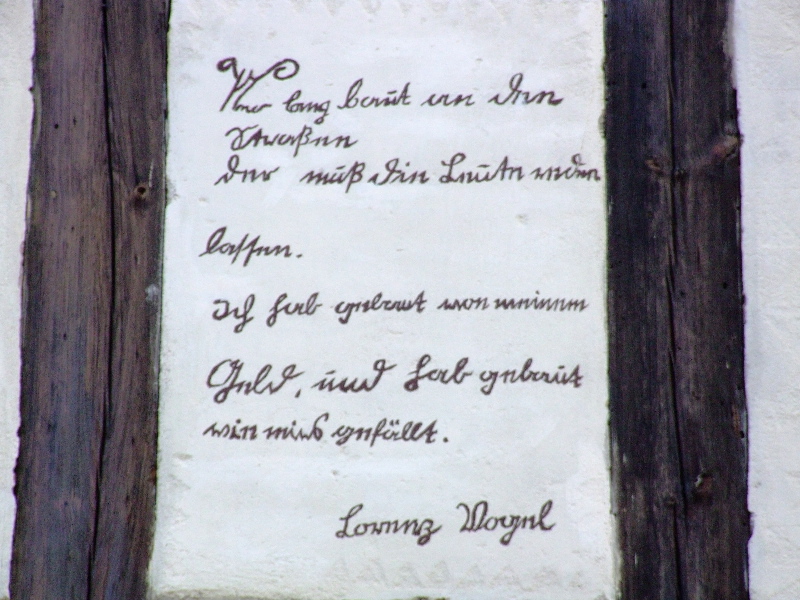 Wer lang baut an den
Straßen
der muß die Leute reden
lassen.
Ich hab gebaut von meinem
Geld, und hab gebaut
wie mirs gefällt.
Lorenz Vogel